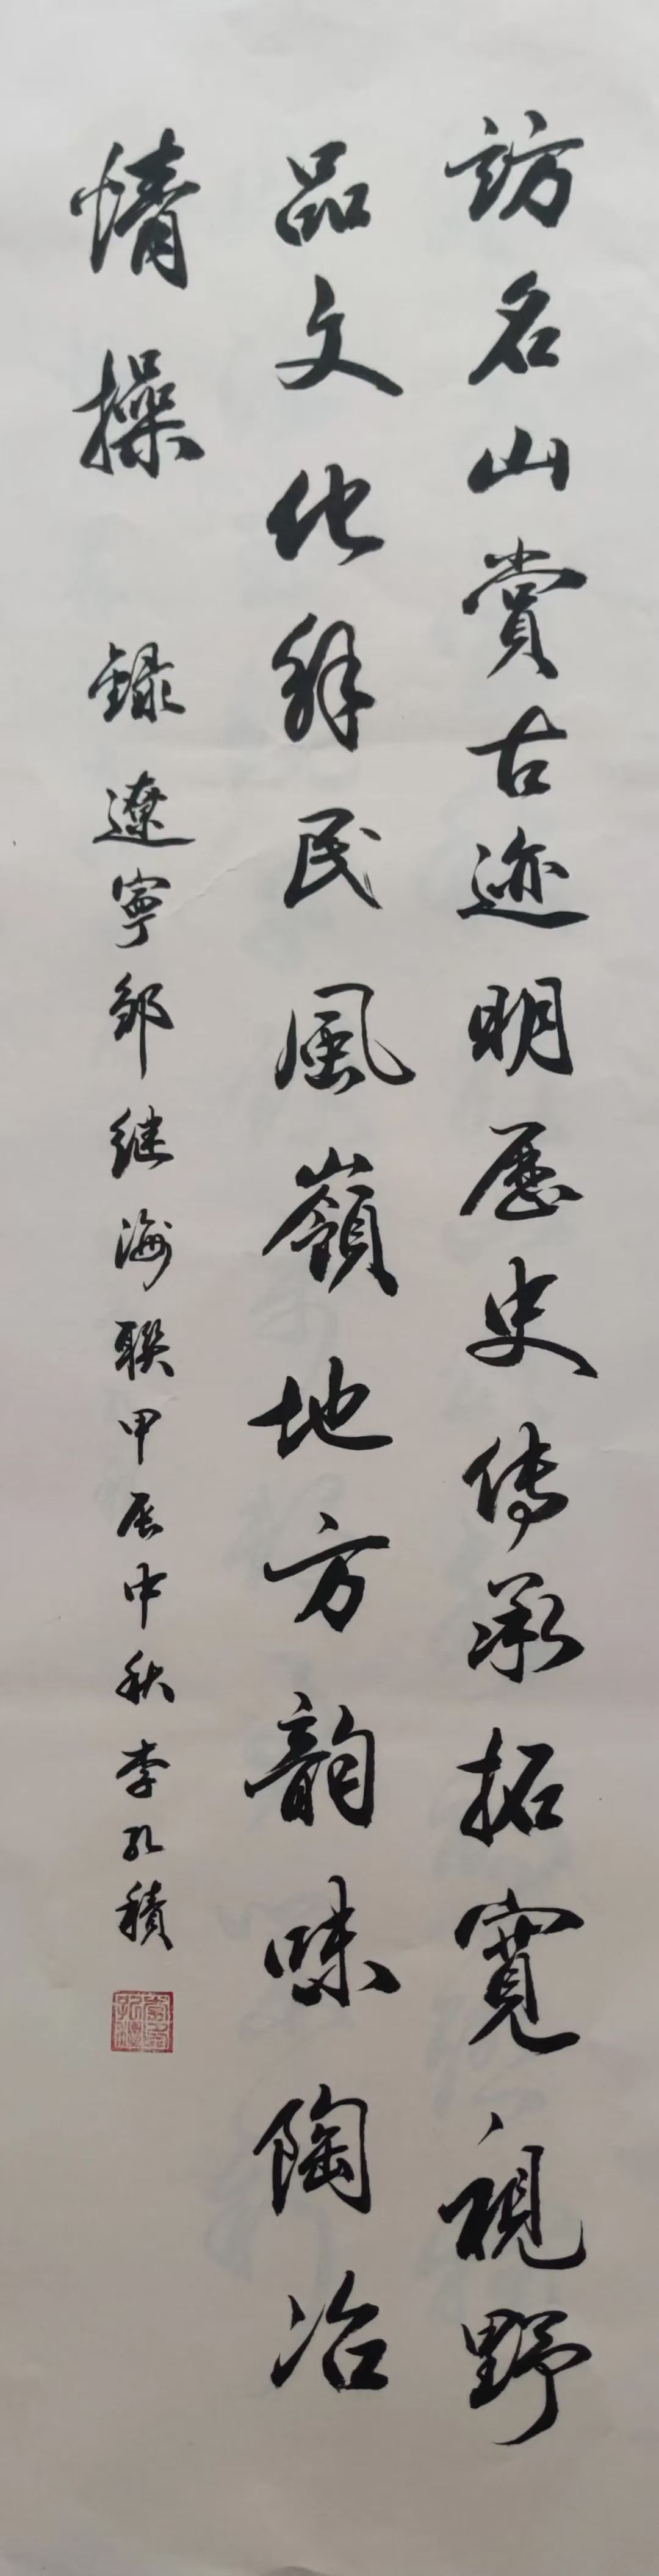 訪名山賞古迹明歷史传承拓寬視野
品文化解民風嶺地方韵味陶冶
情操 録遼寧邹继海聨甲辰中秋李孔積